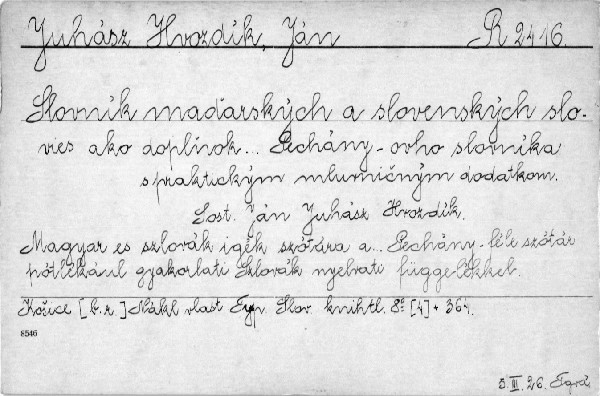 Juhász Hvozdík, Ján R 2416.
Slovník maďarských a slovenských slo-
vies ako doplnok... Pechány-ovho slovníka
s praktickým mluvničným dodatkom.
Sost. Ján Juhász Hvozdík.
Magyar es szlovák igék szótára a... Pechány-féle szótár
pótlékául gyakorlati Szlovák nyelvtani függelékkel.
Košice [b.r.] Nákl. vlast. Typ. Slov. kníhtl. 8° [4] + 364.
8546
3. III. 26.